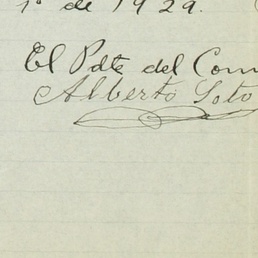 1º de 1929.
El Pdte del Com
Alberto Soto